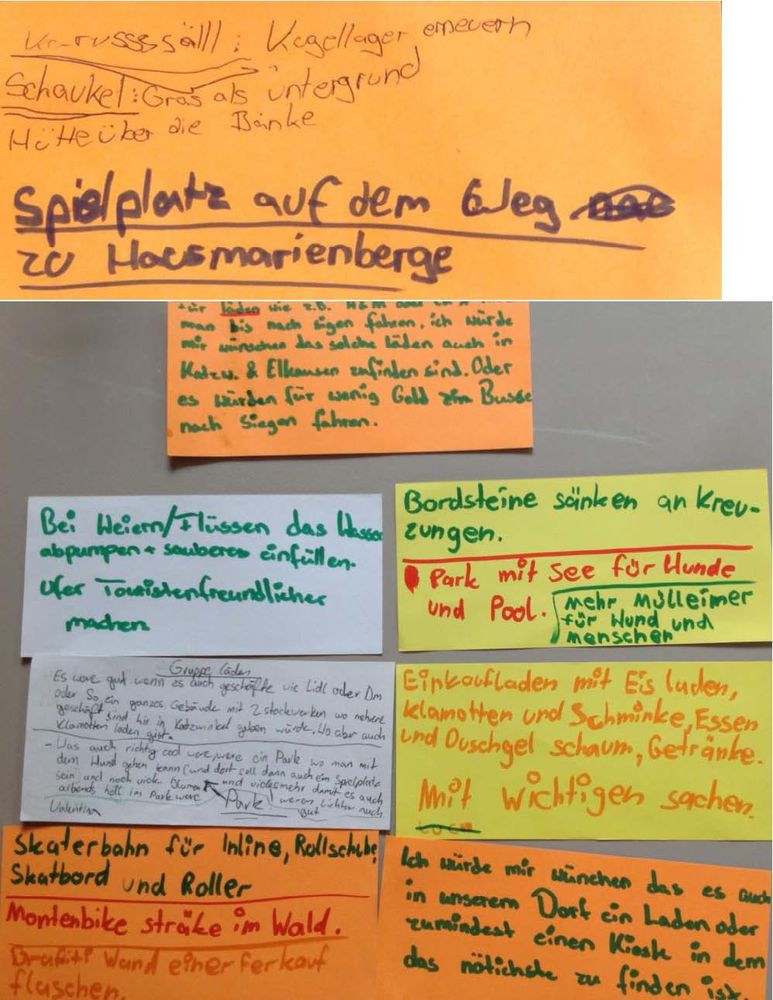 Karussssälll: Kugellager erneuern
Schaukel: Gras als üntergrund
Hütte über die Bänke
Spielplatz auf dem Weg
zu Hausmarienberge
für läden wie z.B. H&M oder
man bis nach sigen fahren, ich würde
mir wünschen das solche läden auch in
Katzw. & Elkausen zufinden sind. Oder
es würden für wenig Geld zim Busse
nach Siegen fahren.
Bei Weiern/Flüssen das Wasser
abpumpen + sauberes einfüllen.
Ufer Touristenfreundlicher
machen
Bordsteine sänken an Kreu-
zungen.
Park mit See für Hunde
und Pool.
mehr Mülleimer
für Hund und
menschen
Gruppe läden
Es wäre gut wenn es auch geschäfte wie Lidl oder Dm
oder So ein ganzes Gebäude mit 2 stockwerken wo mehere
geschäft sind hir in Katzwinkel geben würde. Wo aber auch
Klamotten laden gibt.
- Was auch richtig cool wäre, wäre ein Park wo man mit
dem Hund gehen kann (und dort soll dann auch ein Spielplatz
sein und noch viele Blumen und vieles mehr damit es auch
abends hell im Park wäre
Park
wären Lichter auch
gut
Valentina
Einkaufladen mit Eis laden,
Klamotten und Schminke, Essen
und Duschgel schaum, Getränke.
Mit wichtigen sachen.
Skaterbahn für Inline, Rollschuhe,
Skatbord und Roller
Montenbike sträke im Wald.
Grafiti Wand einer ferkauf
flaschen.
Ich würde mir wünchen das es auch
in unserem Dorf ein Laden oder
zumindest einen Kiosk in dem
das nötichste zu finden ist.